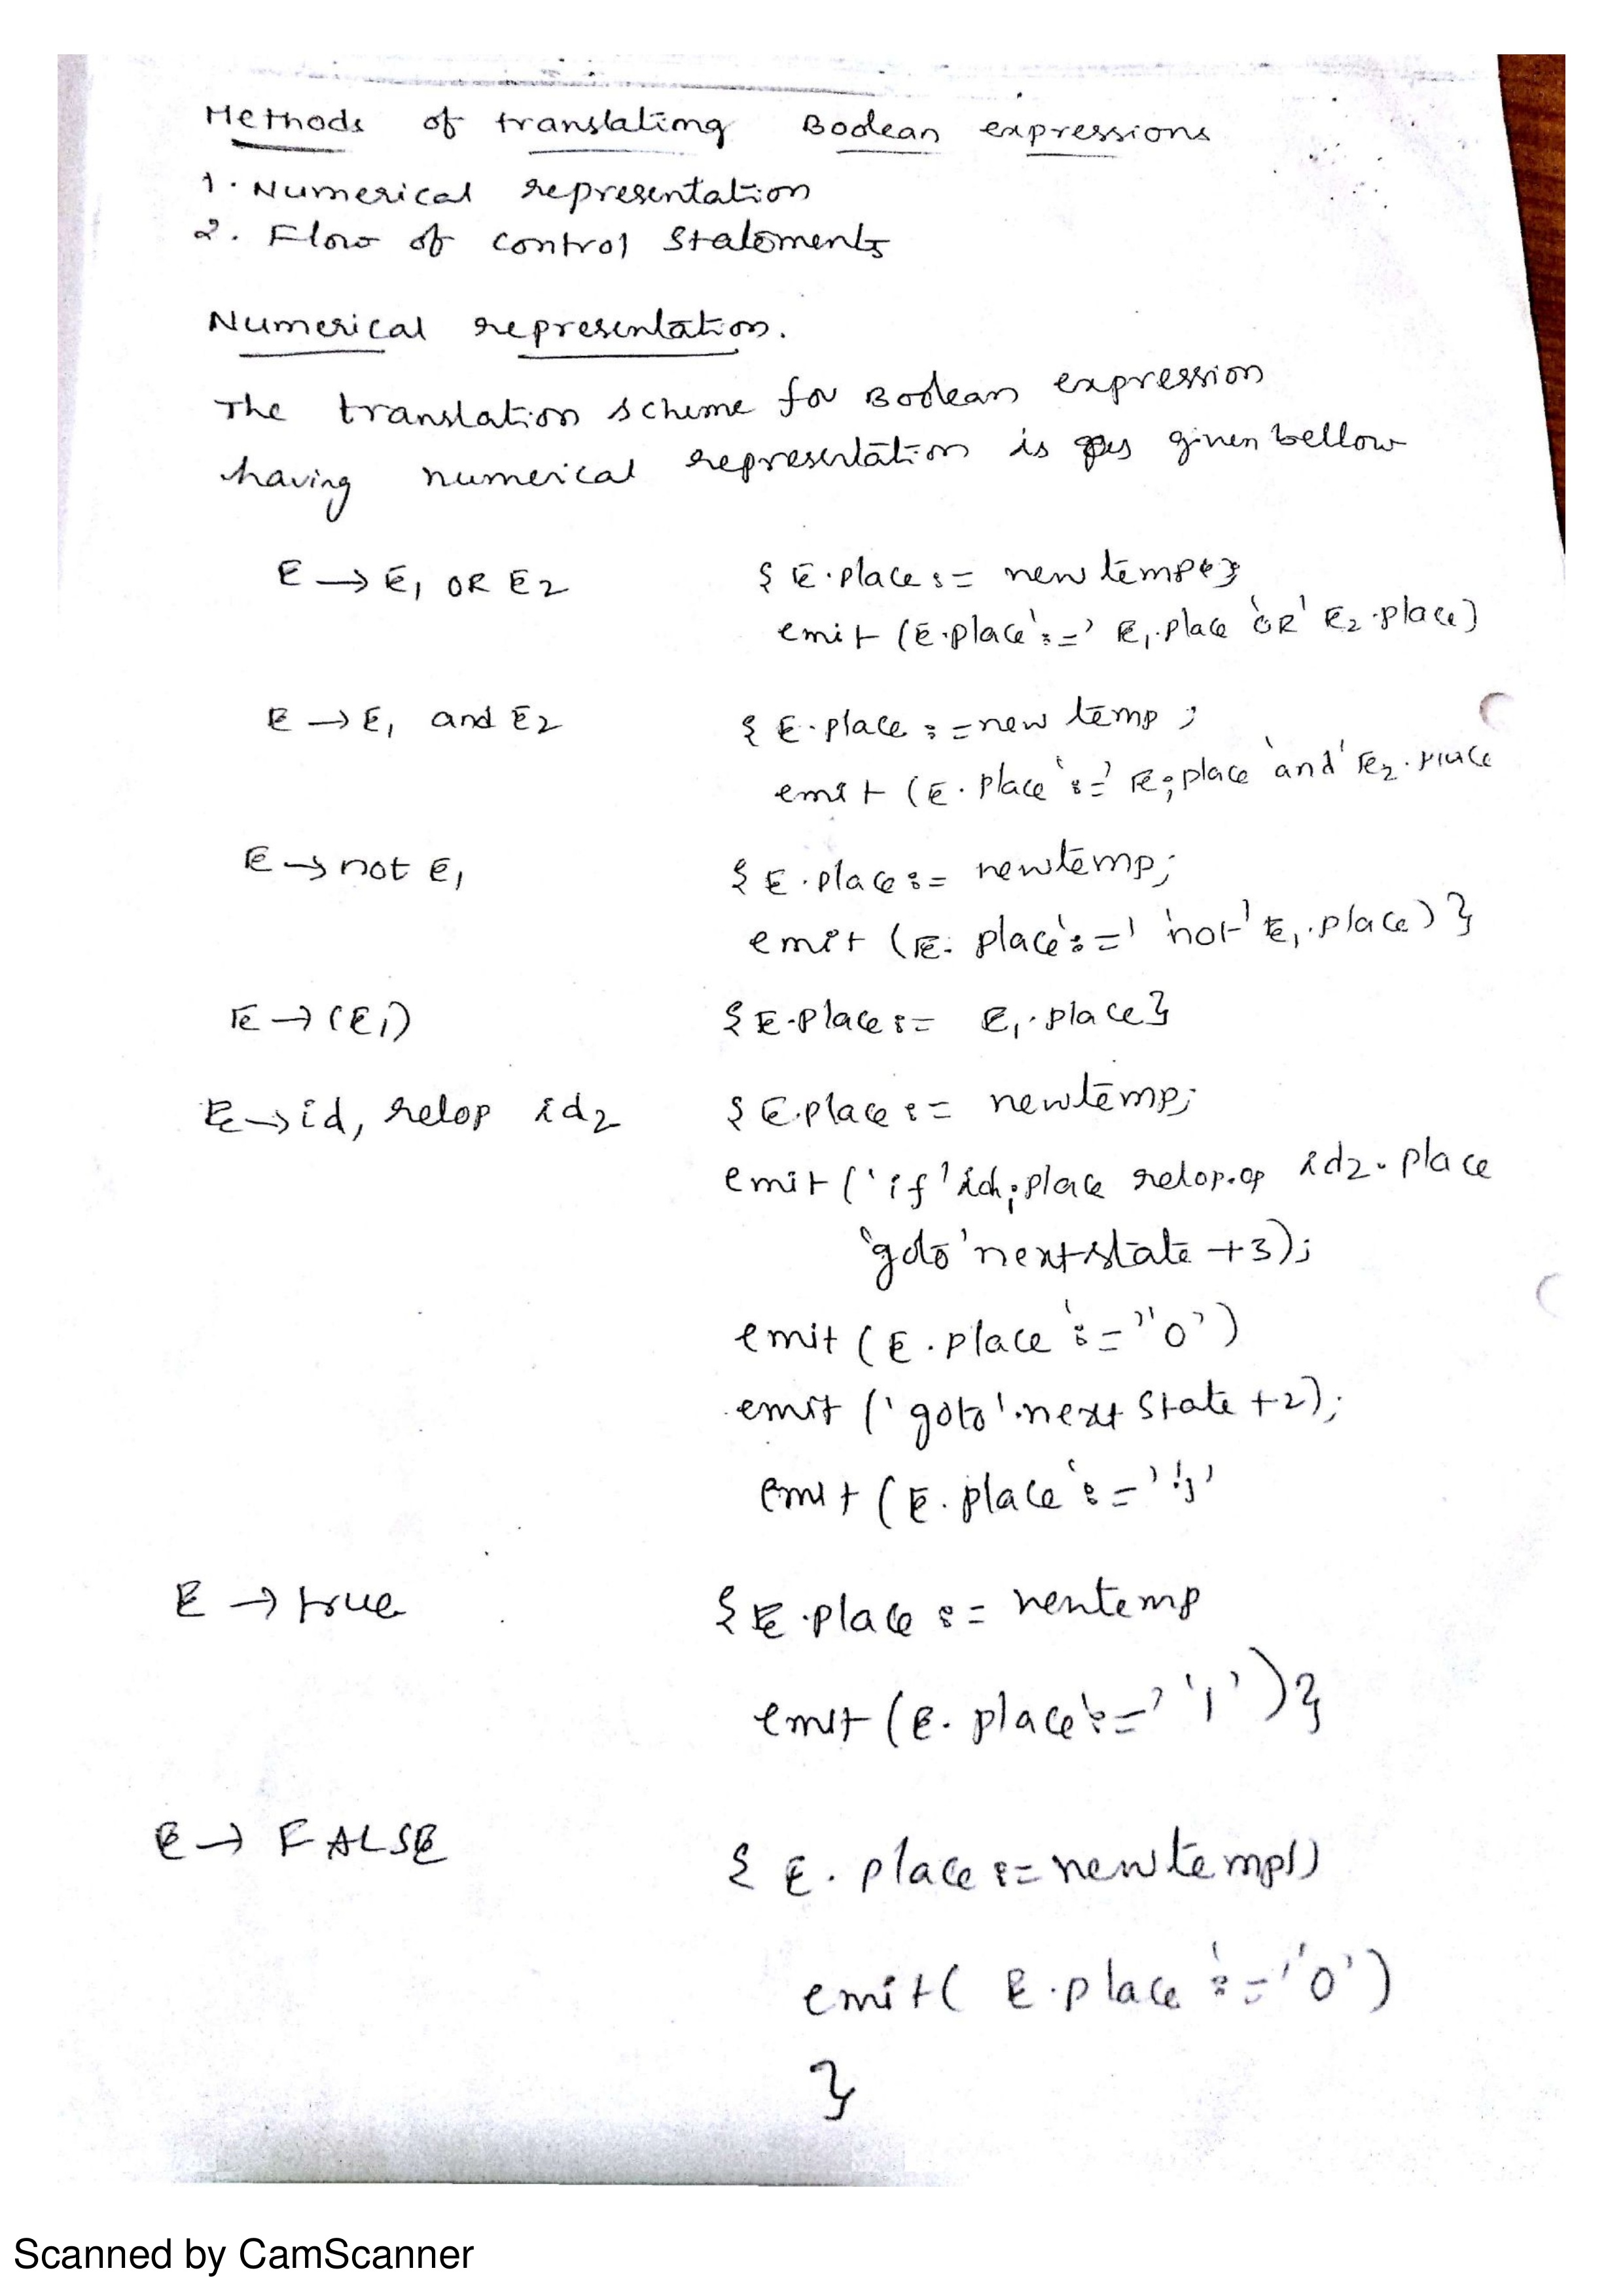 Methods of translating Boolean expressions
1. Numerical representation
2. Flow of control Statements
Numerical representation.
The translation scheme for Boolean expression
having numerical representation is given bellow
E → E1 OR E2 { E.place := newtemp }
emit (E.place ':=' E1.place 'OR' E2.place)
E → E1 and E2 { E.place := new temp ;
emit (E.place ':=' E1.place 'and' E2.place
E → not E1 { E.place := newtemp;
emit (E.place ':=' 'not' E1.place) }
E → (E1) { E.place := E1.place }
E → id1 relop id2 { E.place := newtemp;
emit ('if' id1.place relop.op id2.place
'goto' nextstate +3);
emit (E.place ':=' '0')
emit ('goto' next State +2);
emit (E.place ':=' '1'
E → true { E.place := newtemp
emit (E.place ':=' '1') }
E → FALSE { E.place := newtemp()
emit( E.place ':=' '0')
}
Scanned by CamScanner